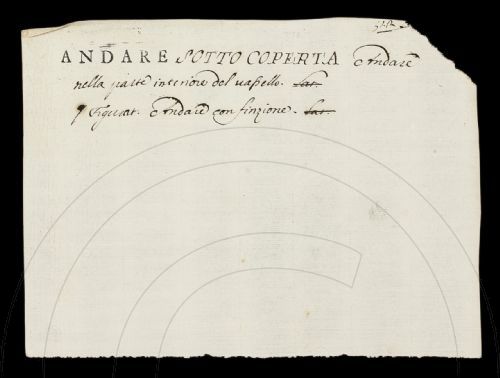 ANDARE SOTTO COPERTA Andare
nella parte inferiore del vassello. Lat.
¶ Figurat. Andare con finzione. Lat.